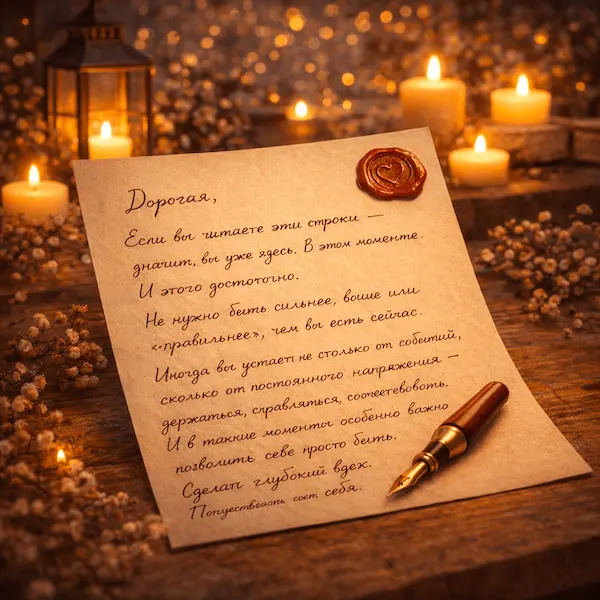 Дорогая,
Если вы читаете эти строки —
значит, вы уже здесь. В этом моменте.
И этого достаточно.
Не нужно быть сильнее, выше или
«правильнее», чем вы есть сейчас.
Иногда вы устаёте не столько от событий,
сколько от постоянного напряжения —
держаться, справляться, соответствовать.
И в такие моменты особенно важно
позволить себе просто быть.
Сделать глубокий вдох.
себя.